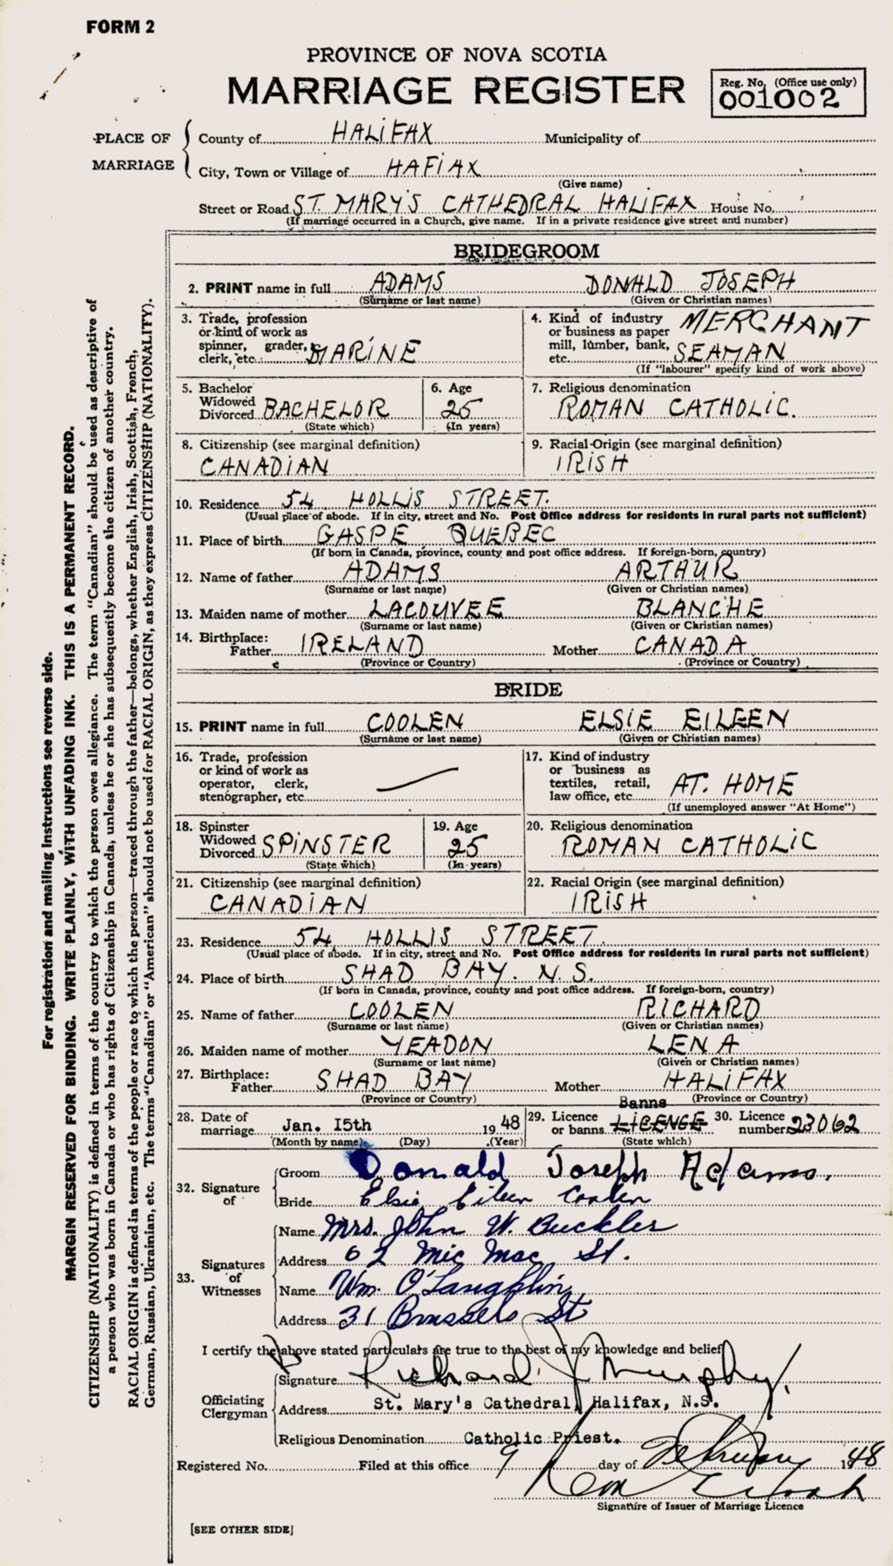 FORM 2
PROVINCE OF NOVA SCOTIA
MARRIAGE REGISTER
Reg. No. (Office use only)
001002
PLACE OF MARRIAGE
County of HALIFAX Municipality of
City, Town or Village of HAFIAX
(Give name)
Street or Road ST. MARY'S CATHEDRAL HALIFAX House No.
(If marriage occurred in a Church, give name. If in a private residence give street and number)
BRIDEGROOM
2. PRINT name in full ADAMS DONALD JOSEPH
(Surname or last name) (Given or Christian names)
3. Trade, profession or kind of work as spinner, grader, clerk, etc. MARINE
4. Kind of industry or business as paper mill, lumber, bank, etc. MERCHANT SEAMAN
(If "labourer" specify kind of work above)
5. Bachelor Widowed Divorced BACHELOR
(State which)
6. Age 25
(In years)
7. Religious denomination
ROMAN CATHOLIC.
8. Citizenship (see marginal definition)
CANADIAN
9. Racial Origin (see marginal definition)
IRISH
10. Residence 54 HOLLIS STREET.
(Usual place of abode. If in city, street and No. Post Office address for residents in rural parts not sufficient)
11. Place of birth GASPE QUEBEC
(If born in Canada, province, county and post office address. If foreign-born, country)
12. Name of father ADAMS ARTHUR
(Surname or last name) (Given or Christian names)
13. Maiden name of mother LACOUVEE BLANCHE
(Surname or last name) (Given or Christian names)
14. Birthplace: Father IRELAND Mother CANADA
(Province or Country) (Province or Country)
BRIDE
15. PRINT name in full COOLEN ELSIE EILEEN
(Surname or last name) (Given or Christian names)
16. Trade, profession or kind of work as operator, clerk, stenographer, etc.
17. Kind of industry or business as textiles, retail, law office, etc. AT. HOME
(If unemployed answer "At Home")
18. Spinster Widowed Divorced SPINSTER
(State which)
19. Age 25
(In years)
20. Religious denomination
ROMAN CATHOLIC
21. Citizenship (see marginal definition)
CANADIAN
22. Racial Origin (see marginal definition)
IRISH
23. Residence 54 HOLLIS STREET.
(Usual place of abode. If in city, street and No. Post Office address for residents in rural parts not sufficient)
24. Place of birth SHAD BAY. N.S.
(If born in Canada, province, county and post office address. If foreign-born, country)
25. Name of father COOLEN RICHARD
(Surname or last name) (Given or Christian names)
26. Maiden name of mother YEADON LENA
(Surname or last name) (Given or Christian names)
27. Birthplace: Father SHAD BAY Mother HALIFAX
(Province or Country) (Province or Country)
28. Date of marriage Jan. 15th 1948
(Month by name) (Day) (Year)
29. Licence or banns LICENCE Banns
(State which)
30. Licence number 23062
32. Signature of
Groom Donald Joseph Adams.
Bride Elsie Eileen Coolen
33. Signatures of Witnesses
Name Mrs. John W. Buckler
Address 62 Mic Mac St.
Name Wm. O'Laughlin
Address 31 Brussels St
I certify the above stated particulars are true to the best of my knowledge and belief
Officiating Clergyman
Signature Richard J Murphy.
Address St. Mary's Cathedral, Halifax, N.S.
Religious Denomination Catholic Priest.
Registered No. Filed at this office 9 day of February 1948
Signature of Issuer of Marriage Licence
[SEE OTHER SIDE]
For registration and mailing instructions see reverse side.
MARGIN RESERVED FOR BINDING. WRITE PLAINLY, WITH UNFADING INK. THIS IS A PERMANENT RECORD.
CITIZENSHIP (NATIONALITY) is defined in terms of the country to which the person owes allegiance. The term "Canadian" should be used as descriptive of
a person who was born in Canada or who has rights of Citizenship in Canada, unless he or she has subsequently become the citizen of another country.
RACIAL ORIGIN is defined in terms of the people or race to which the person—traced through the father—belongs, whether English, Irish, Scottish, French,
German, Russian, Ukrainian, etc. The terms "Canadian" or "American" should not be used for RACIAL ORIGIN, as they express CITIZENSHIP (NATIONALITY).